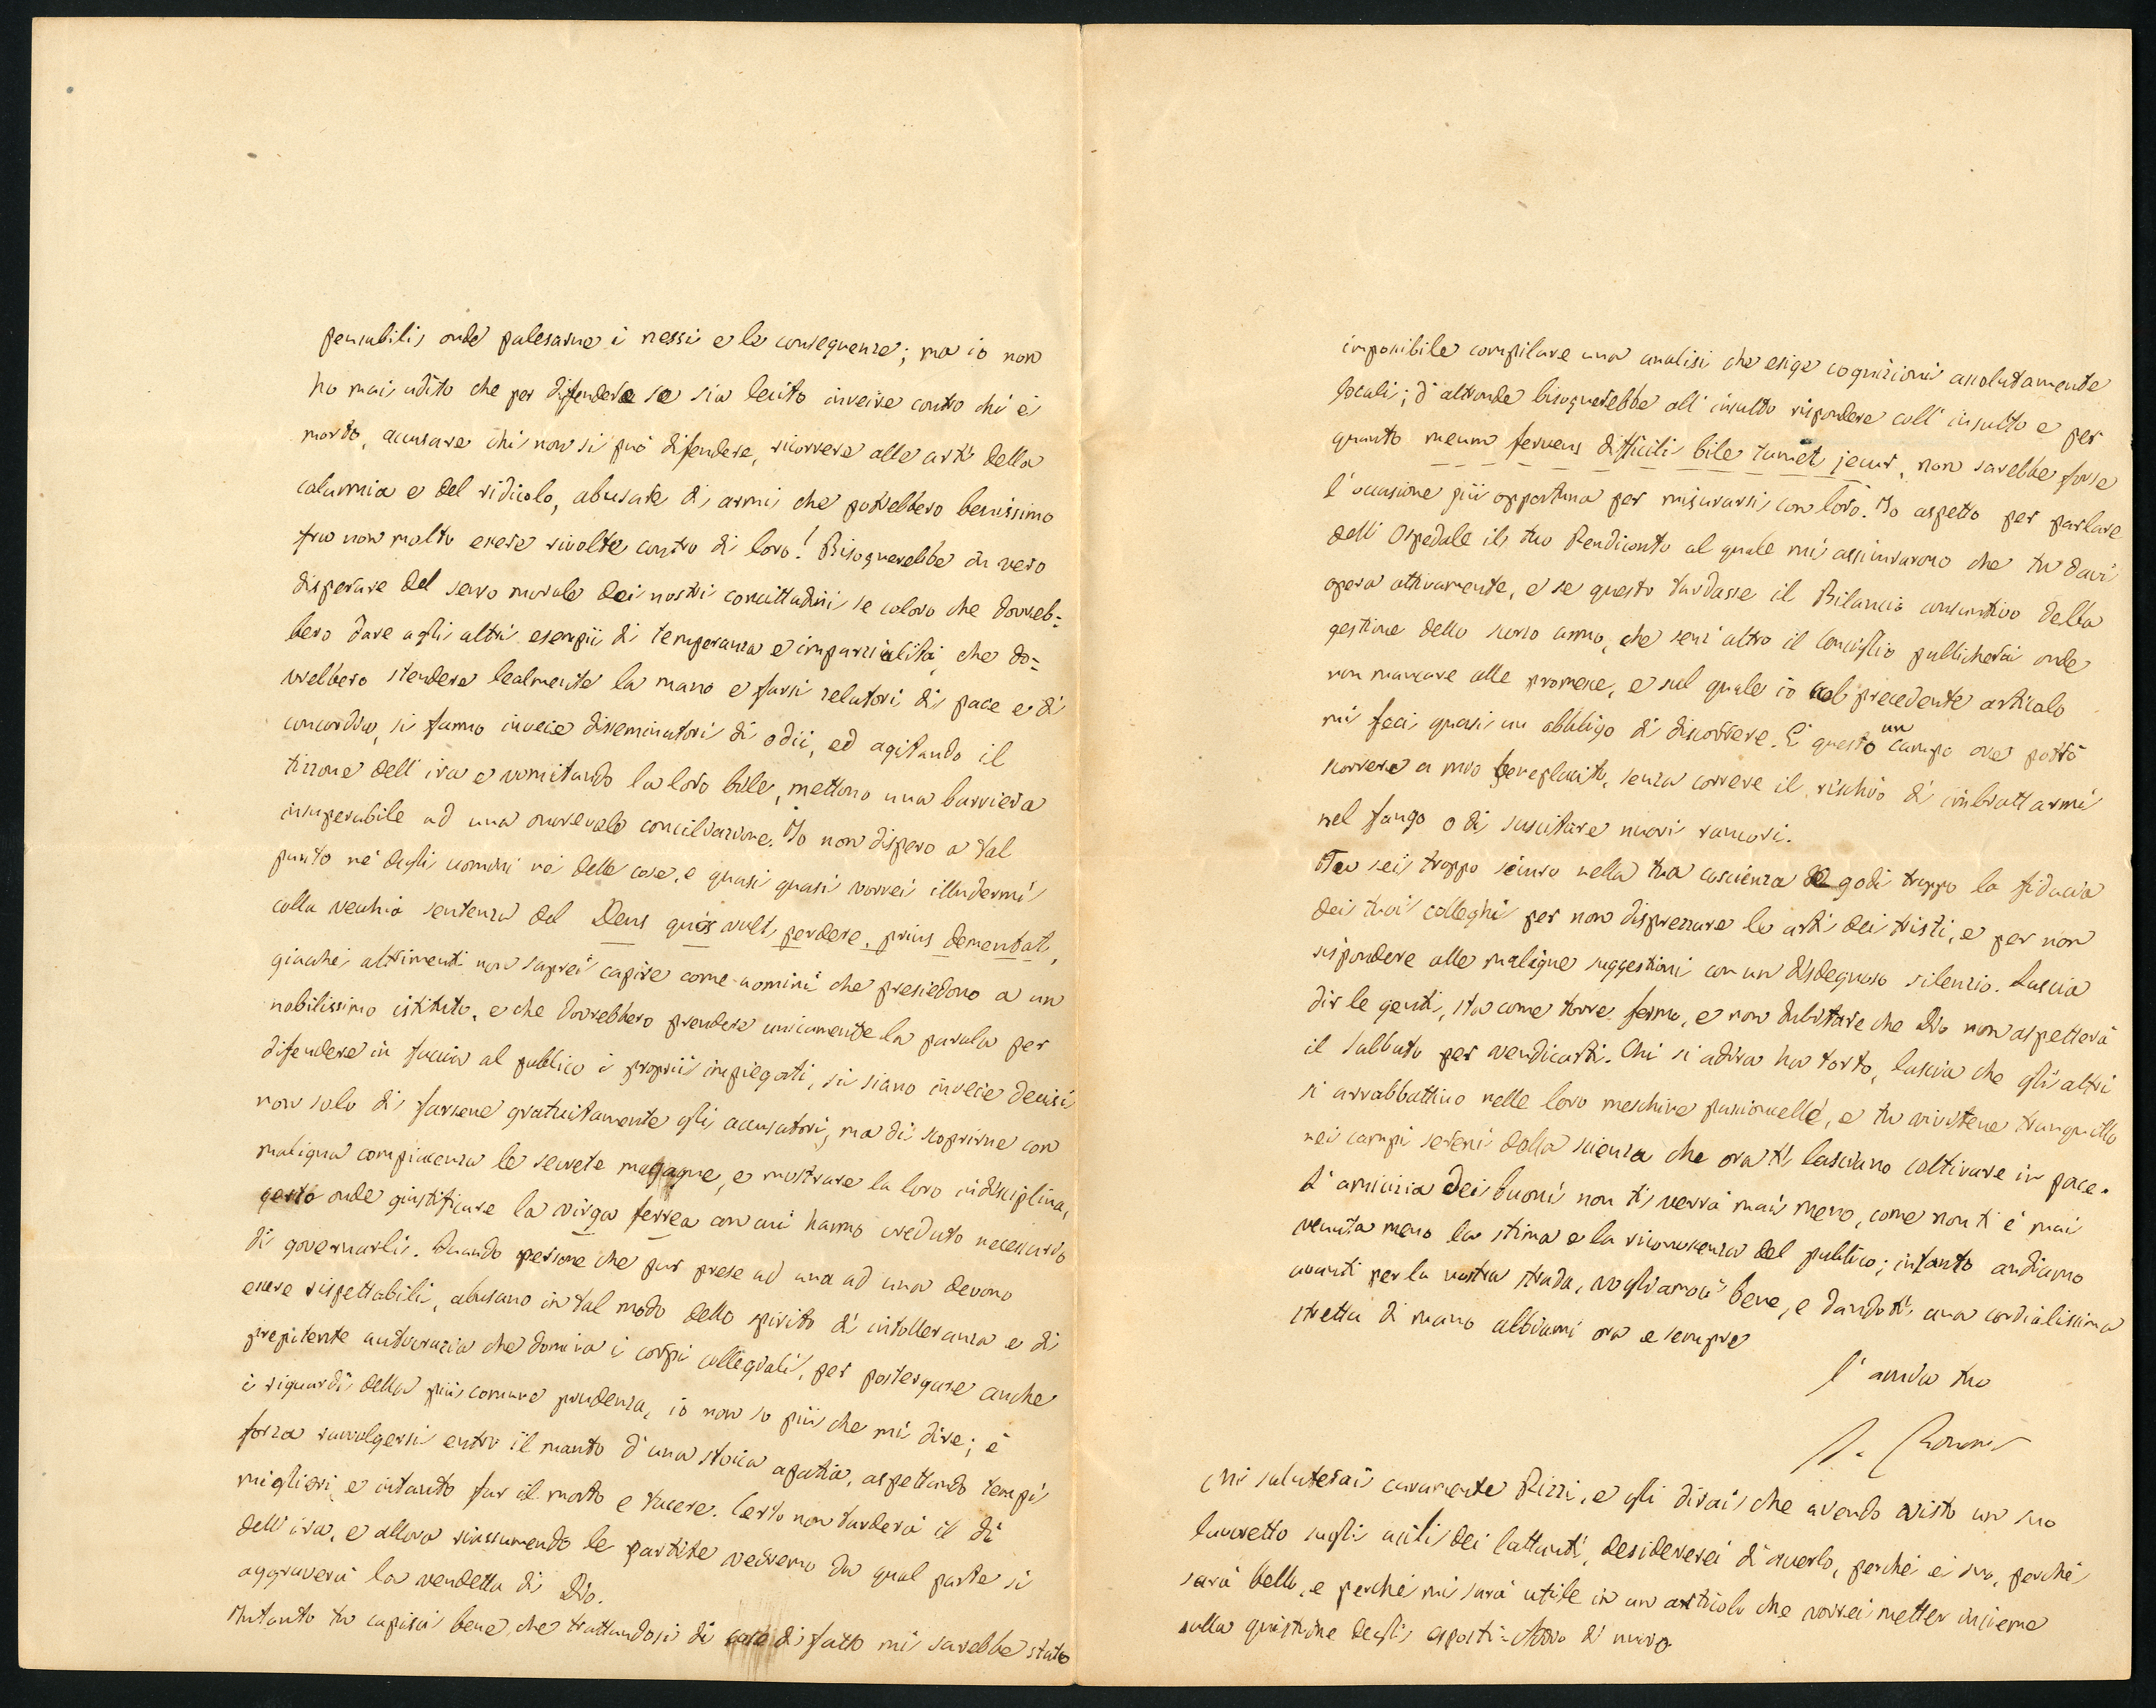 pensabili, onde palesarne i nessi e le conseguenze; ma io non
ho mai udito che per difendere se sia lecito inveire contro chi è
morto, accusare chi non si può difendere, ricorrere alle arti della
calunnia e del ridicolo, abusare di armi che potrebbero benissimo
fra non molto essere rivolte contro di loro! Bisognerebbe in vero
disperare del senso morale dei nostri concittadini se coloro che dovreb=
bero dare agli altri esempii di temperanza e imparzialità, che do=
vrebbero stendere lealmente la mano e farsi zelatori di pace e di
concordia, si fanno invece diseminatori di odii, ed agitando il
tizzone dell'ira e vomitando la loro bile, mettono una barriera
insuperabile ad una onorevole conciliazione. Io non dispero a tal
punto nè degli uomini nè delle cose, e quasi quasi vorrei illudermi
colla vecchia sentenza del Deus quos vult perdere, prius dementat,
giacchè altrimenti non saprei capire come uomini che presiedono a un
nobilissimo istituto, e che dovrebbero prendere unicamente la parola per
difendere in faccia al pubblico i proprii impiegati, si siano invece decisi
non solo di farsene gratuitamente gli accusatori, ma di scoprirne con
maligna compiacenza le secrete magagne, e mostrare la loro indisciplina,
onde giustificare la virga ferrea con cui hanno creduto necessario
di governarli. Quando persone che pur prese ad una ad una devono
essere rispettabili, abusano in tal modo dello spirito d'intolleranza e di
prepotente autocrazia che domina i corpi collegiali, per postergare anche
i riguardi della più comune prudenza, io non so più che mi dire; è
forza ravvolgersi entro il manto d'una stoica apatia, aspettando tempi
migliori, e intanto far il morto e tacere. Certo non tarderà il dì
dell'ira, e allora riassumendo le partite vedremo da qual parte si
aggraverà la vendetta di Dio.
Intanto tu capisci bene che trattandosi di cose di fatto mi sarebbe stato
imposibile compilare una analisi che esige cognizioni assolutamente
locali; d'altronde bisognerebbe all'insulto rispondere coll'insulto e per
quanto meum fervens difficili bile tumet jecur, non sarebbe forse
l'occasione più opportuna per misurarsi con loro. Io aspetto per parlare
dell'Ospedale il tuo Rendiconto al quale mi assicurarono che tu davi
opera attivamente, e se questo tardasse il Bilancio consuntivo della
gestione dello scorso anno, che senz'altro il Consiglio pubblicherà onde
non mancare alle promesse, e sul quale io nel precedente articolo
mi feci quasi un obbligo di discorrere. È questo un campo ove potrò
scorrere a mio beneplacito, senza correre il rischio di imbrattarmi
nel fango o di suscitare nuovi rancori.
Tu sei troppo sicuro nella tua coscienza e godi troppo la fiducia
dei tuoi colleghi per non disprezzare le arti dei tristi, e per non
rispondere alle maligne suggestioni con un disdegnoso silenzio. Lascia
dir le genti, sta come torre ferma, e non dubitare che Dio non aspetterà
il sabbato per vendicarti. Chi si adira ha torto, lascia che gli altri
si arrabbattino nelle loro meschine passioncelle, e tu vivitene tranquillo
nei campi sereni della scienza che ora ti lasciano coltivare in pace.
L'amicizia dei buoni non ti verrà mai meno, come non ti è mai
venuta meno la stima e la riconoscenza del pubblico; intanto andiamo
avanti per la nostra strada, vogliamoci bene, e dandoti una cordialissima
stretta di mano abbiami ora e sempre
l'amico tuo
Mi saluterai caramente Rizzi, e gli dirai che avendo visto un suo
lavoretto sugli asili dei lattanti, desidererei d'averlo, perchè è suo, perchè
sarà bello, e perchè mi sarà utile in un articolo che vorrei metter insieme
sulla quistione degli esposti. Addio di nuovo